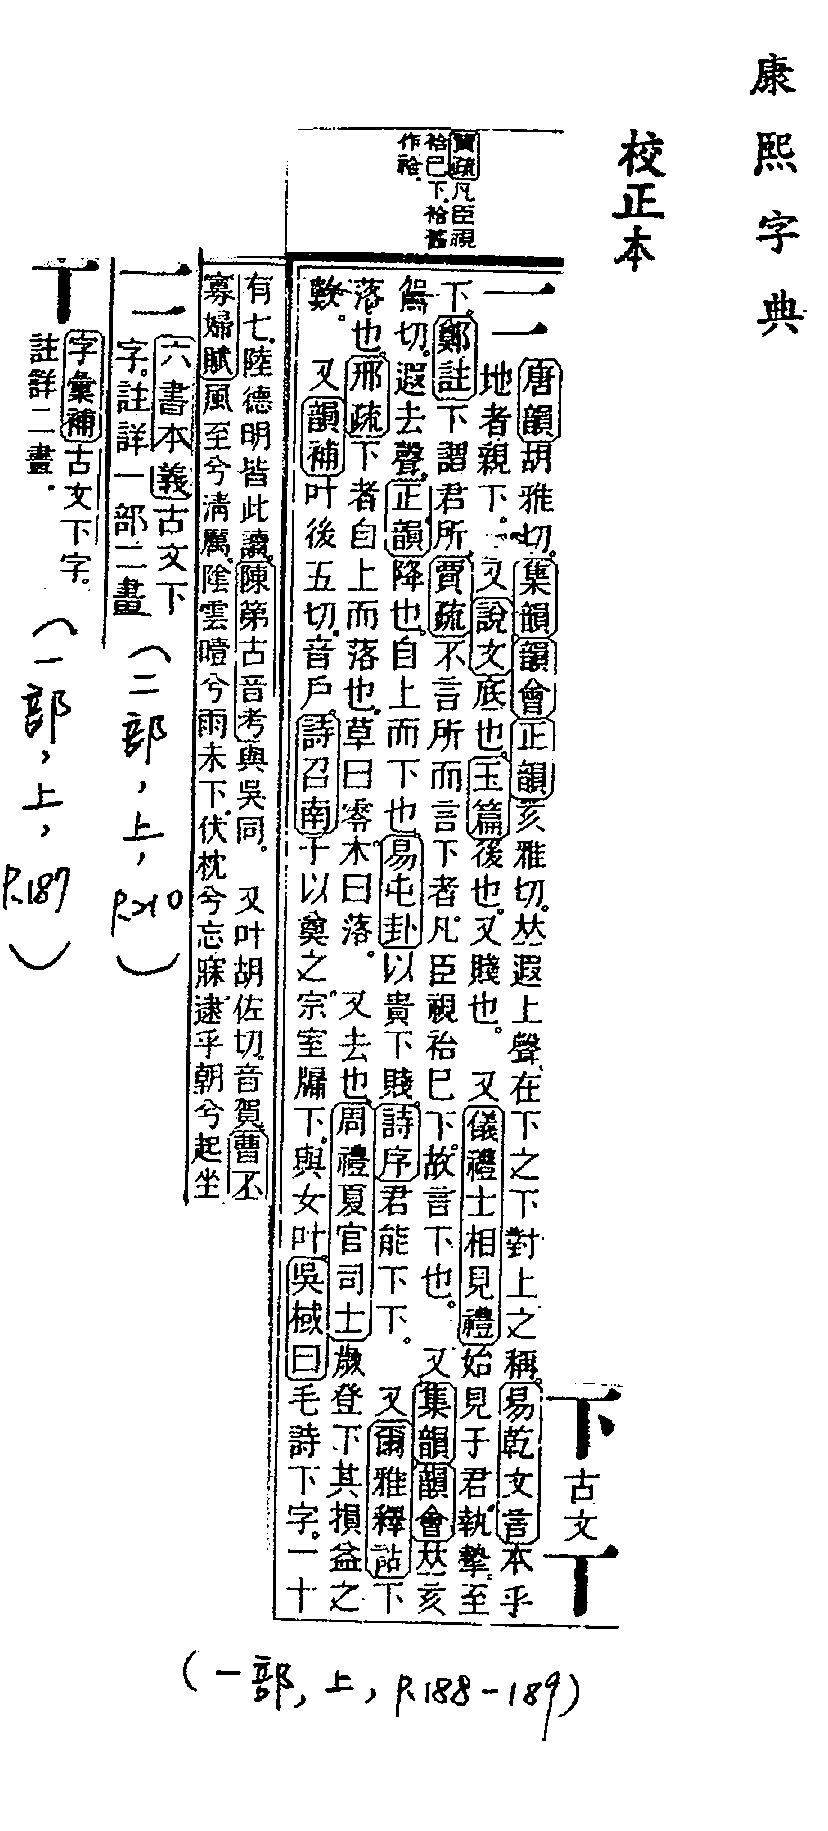 康熙字典
校正本
賈疏凡臣視
袷巳下袷舊
作祫。
下古文丅
二唐韻胡雅切。集韻韻會正韻亥雅切。𠀤遐上聲在下之下對上之稱。易乾文言本乎
地者親下。又說文底也。玉篇後也。又賤也。又儀禮士相見禮始見于君執摯。至
下。鄭註下謂君所。賈疏不言所而言下者。凡臣視袷巳下。故言下也。又集韻韻會𠀤亥
駕切。遐去聲。正韻降也。自上而下也。易屯卦以貴下賤。詩序君能下下。又爾雅釋詁下
落也。邢疏下者自上而落也。草曰零木曰落。又去也。周禮夏官司士歲登下其損益之
數。又韻補叶後五切。音戶。詩召南于以奠之宗室牖下。與女叶。吳棫曰毛詩下字。一十
有七。陸德明皆此讀。陳第古音考與吳同。又叶胡佐切。音賀。曹丕
寡婦賦風至兮淸厲。陰雲曀兮雨未下。伏枕兮忘寐逮乎朝兮起坐
二六書本義古文下
字。註詳一部二畫
丅字彙補古文下字。
註詳二畫。
(一部,上,P.188-189)
(二部,上,P.210)
(一部,上,P.187)